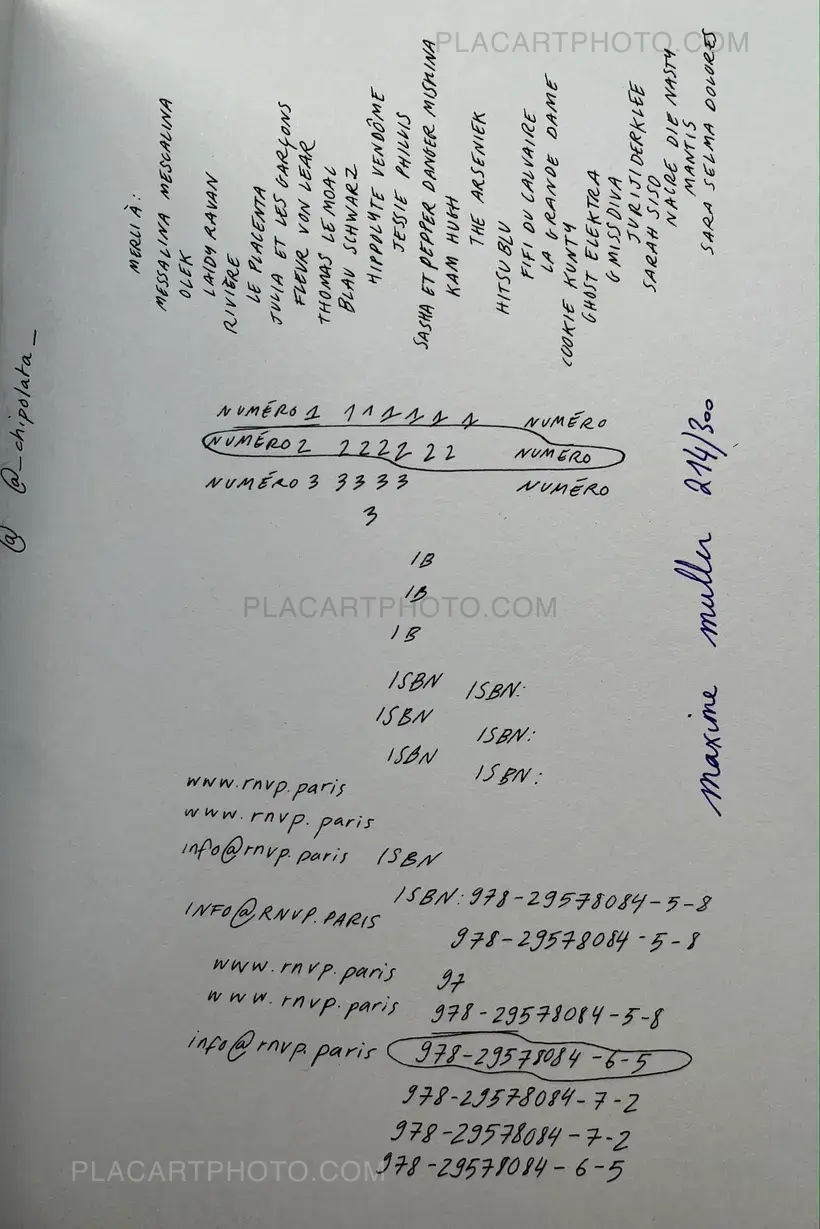 PLACARTPHOTO.COM
MERLI À:
MESSALINA MESCALINA
OLEK
LAIDY RAVAN
RIVIÈRE
LE PLACENTA
JULIA ET LES GARÇONS
FLEUR VON LEAR
THOMAS LE MOAL
BLAU SCHWARZ
HIPPOLYTE VENDÔME
JESSIE PHILLIS
SASHA ET PEPPER DANGER MISKINA
KAM HUGH
THE ARSENIEK
HITSU BLU
FIFI DU CALVAIRE
LA GRANDE DAME
COOKIE KUNTY
GHOST ELEKTRA
G MISSDIVA
JURIJI DERKLEE
SARAH SISO
NAIRE DIE NASTY
MANTIS
SARA SELMA DOLORES
@ @_chipolata_
NUMÉRO 1 1 1 1 1 1 1 NUMÉRO
NUMÉRO 2 2 2 2 2 2 2 NUMÉRO
NUMÉRO 3 3 3 3 3 NUMÉRO
3
maxime muller 214/300
IB
IB
PLACARTPHOTO.COM
IB
ISBN ISBN:
ISBN
ISBN:
ISBN
ISBN:
www.rnvp.paris
www.rnvp.paris
info@rnvp.paris ISBN
ISBN: 978-29578084-5-8
INFO@RNVP.PARIS
978-29578084-5-8
www.rnvp.paris 97
www.rnvp.paris 978-29578084-5-8
info@rnvp.paris 978-29578084-6-5
978-29578084-7-2
978-29578084-7-2
978-29578084-6-5
PLACARTPHOTO.COM